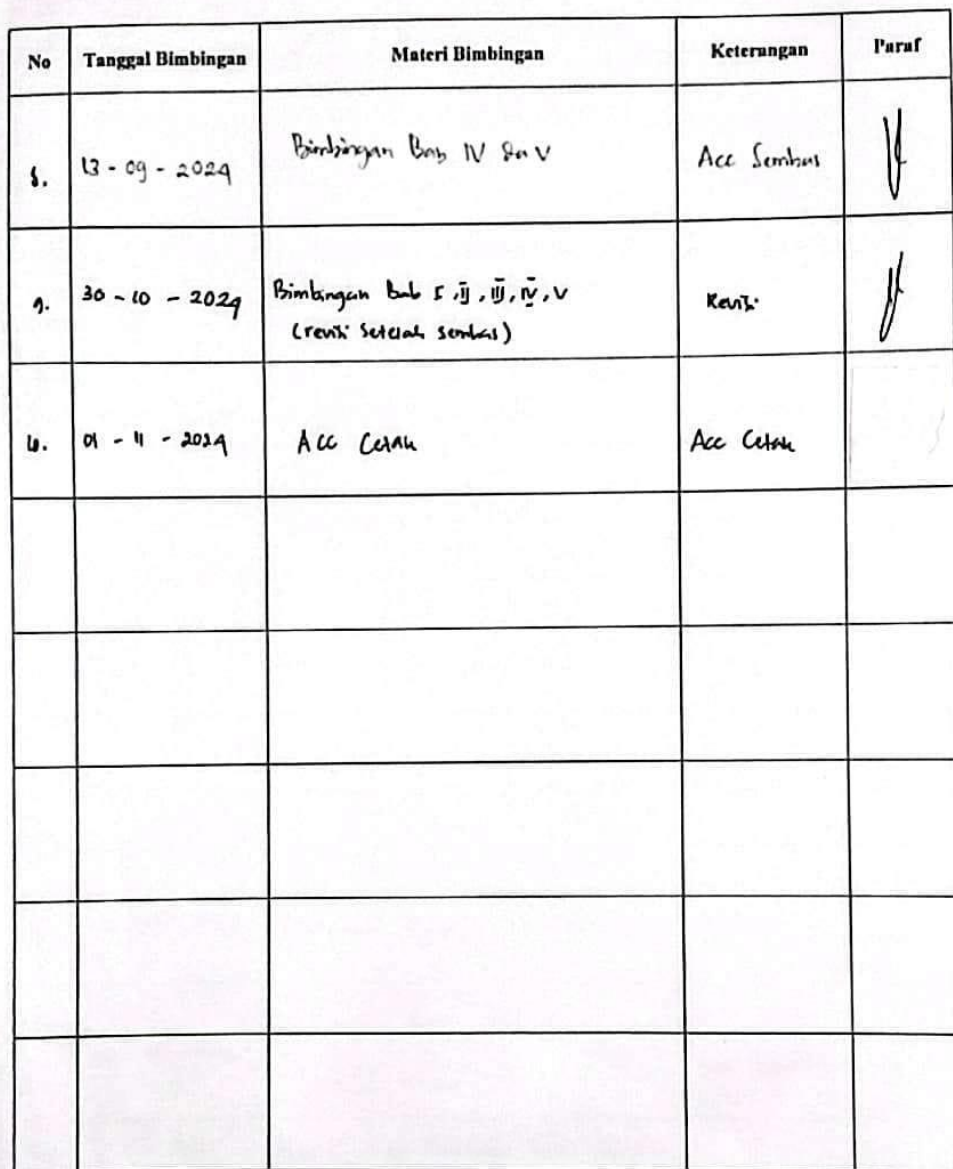 No Tanggal Bimbingan Materi Bimbingan Keterangan Paraf
8. 13 - 09 - 2024 Bimbingan Bab IV dan V Acc Semhas
9. 30 - 10 - 2024 Bimbingan Bab I, II, III, IV, V Revisi
(revisi setelah semhas)
10. 01 - 11 - 2024 Acc Cetak Acc Cetak